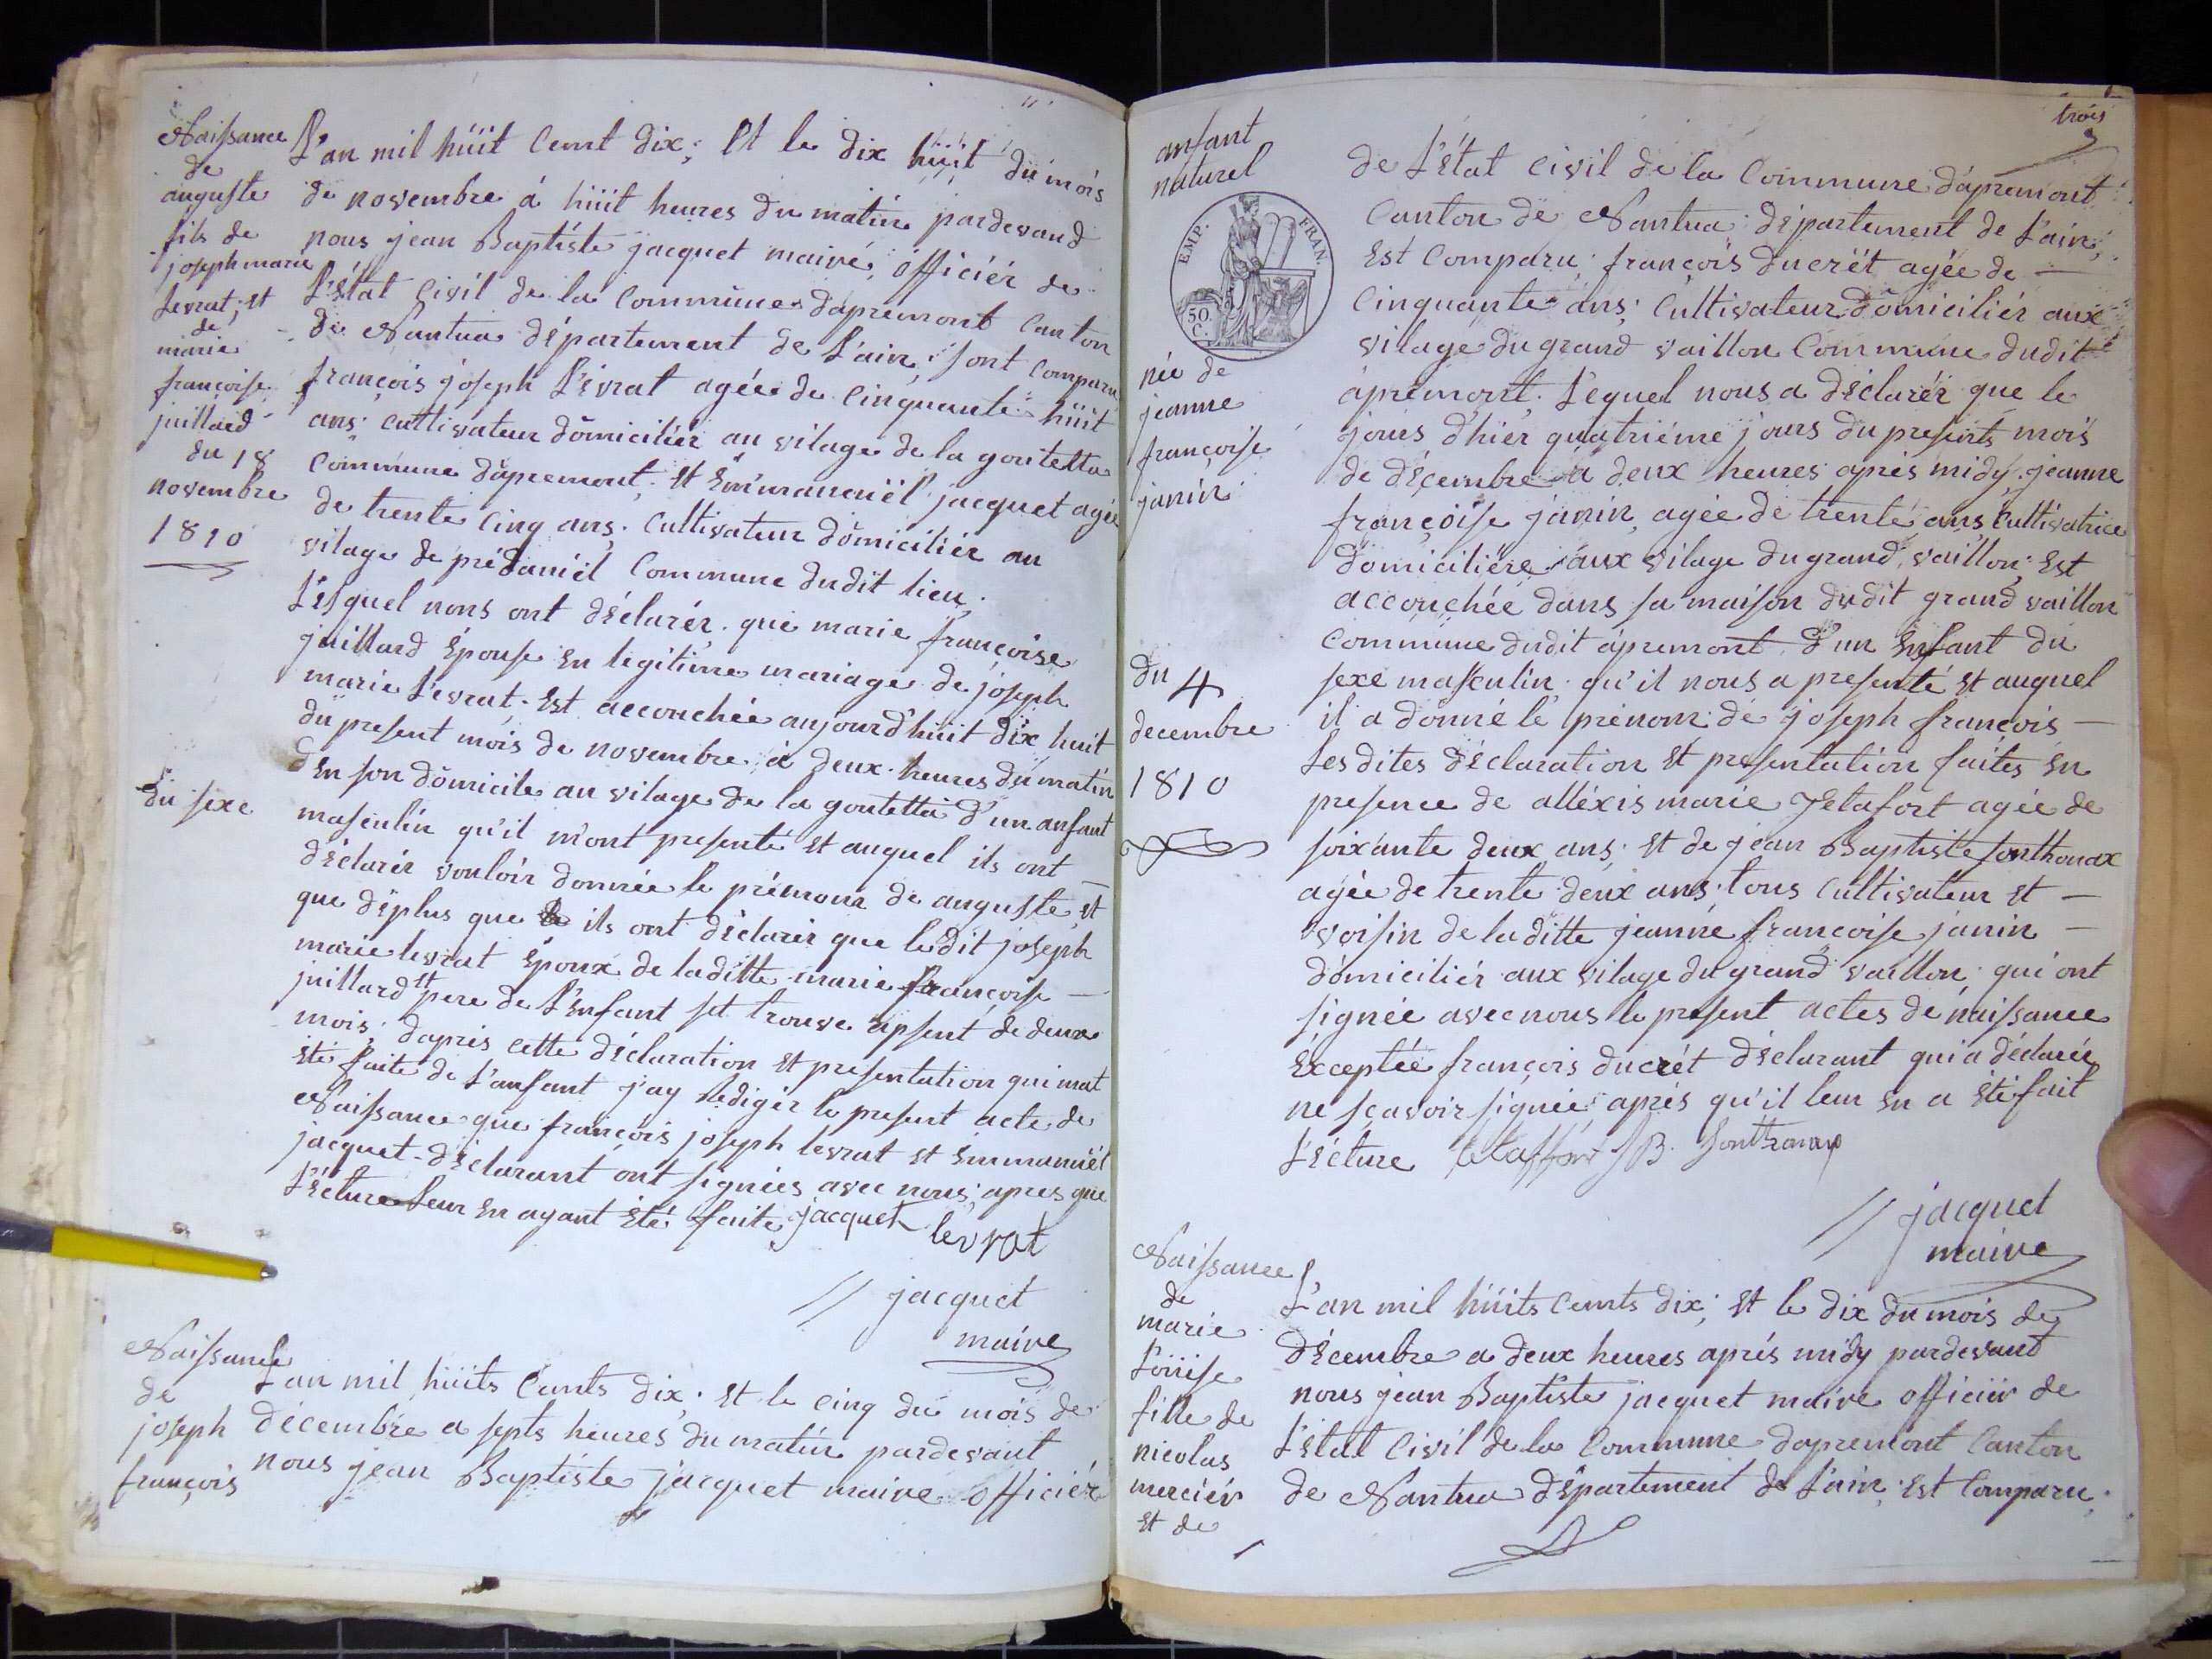 Naissance
de
auguste
fils de
joseph marie
levrat, et
de
marie
françoise
juillard
du 18
novembre
1810
du sexe
L'an mil hüit Cent dix; Et le dix hüit du mois
de novembre à hüit heures du matin pardevand
nous jean Baptiste jacquet maire, officiér de
L'état Civil de la Commune d'apremont Canton
de Nantua département de L'ain, sont Comparu
françois joseph L'evrat agée de Cinquante hüit
ans; Cultivateur domiciliér au vilage de la goutetta
Commune d'apremont, et Emmanuël jacquet agée
de trente Cinq ans; Cultivateur domiciliér au
vilage de prédaniél Commune dudit lieu;
Lesquel nous ont déclarér que marie françoise
juillard épouse en legitime mariage de joseph
marie L'evrat. Est accouchée aujourd'hüit dix huit
du present mois de novembre à deux heures du matin
En son domicile au vilage de la goutetta d'un anfant
masculin qu'il m'ont presenté et auquel ils ont
déclarér vouloir donnée le prénom de auguste, et
que déplus que ils ont déclarér que ledit joseph
marie levrat époux de laditte marie françoise
juillard et pere de L'enfant set trouve apsent de deux
mois; d'aprés cette déclaration et presentation qui mat
été faite de L'anfant j'ay redigér le present acte de
Naissance que françois joseph levrat et Emmanuël
jacquet déclarant ont signées avec nous; apres que
L'écture Leur en ayant été faite jacquet levrat
jacquet
maire
Naissance
de
joseph
françois
L'an mil hüits Cents dix; et le cinq du mois de
décembre a septs heures du matin pardevant
nous jean Baptiste jacquet maire officiér
trois
3
anfant
naturel
EMP. FRAN.
50 C.
née de
jeanne
françoise
janin
du 4
decembre
1810
de L'état Civil de la Commune d'apremont
Canton de Nantua département de L'ain,
Est Comparu; françois ducrët agée de
Cinquante ans; Cultivateur domiciliér aux
vilage du grand vaillon Commune dudit
apremont. Lequel nous a déclarér que le
jours d'hiér quatriéme jours du presents mois
de décembre à deux heures aprés midy jeanne
françoise janin agée de trente ans Cultivatrice
domicilière aux vilage du grand vaillon, Est
accouchée dans sa maison dudit grand vaillon
Commune dudit apremont d'un Enfant du
sexe masculin qu'il nous a presenté et auquel
il a donné le prénom de joseph françois
Lesdites déclaration et presentation faites en
presence de alléxis marie Letafort agée de
soixante deux ans; et de jean Baptiste sonthonax
agée de trente deux ans, tous Cultivateur et
voisin de laditte jeanne françoise janin
domiciliér aux vilage du grand vaillon; qui ont
signée avec nous le present actes de naissance
Exceptée françois ducrét déclarant qui a déclarér
ne sçavoir signée aprés qu'il leur en a été fait
L'écture letaffort JB. Sonthonax
jacquet
maire
Naissance
de
marie
Loüise
fille de
nicolas
merciér
et de
L'an mil hüits Cents dix; et le dix du mois de
décembre a deux heures aprés midy pardevant
nous jean Baptiste jacquet maire officiér de
L'état Civil de la Commune d'apremont Canton
de Nantua département de L'ain Est Comparu;